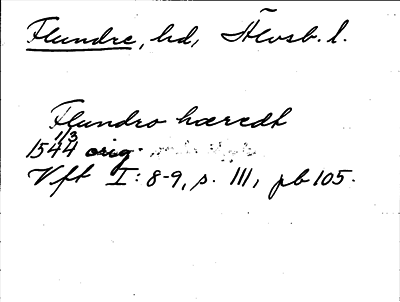 Flundre, hd, Älvsb. l.
Flundro hæredt
1/3
1544 orig.
Vft I: 8-9, s. 111, pb 105.